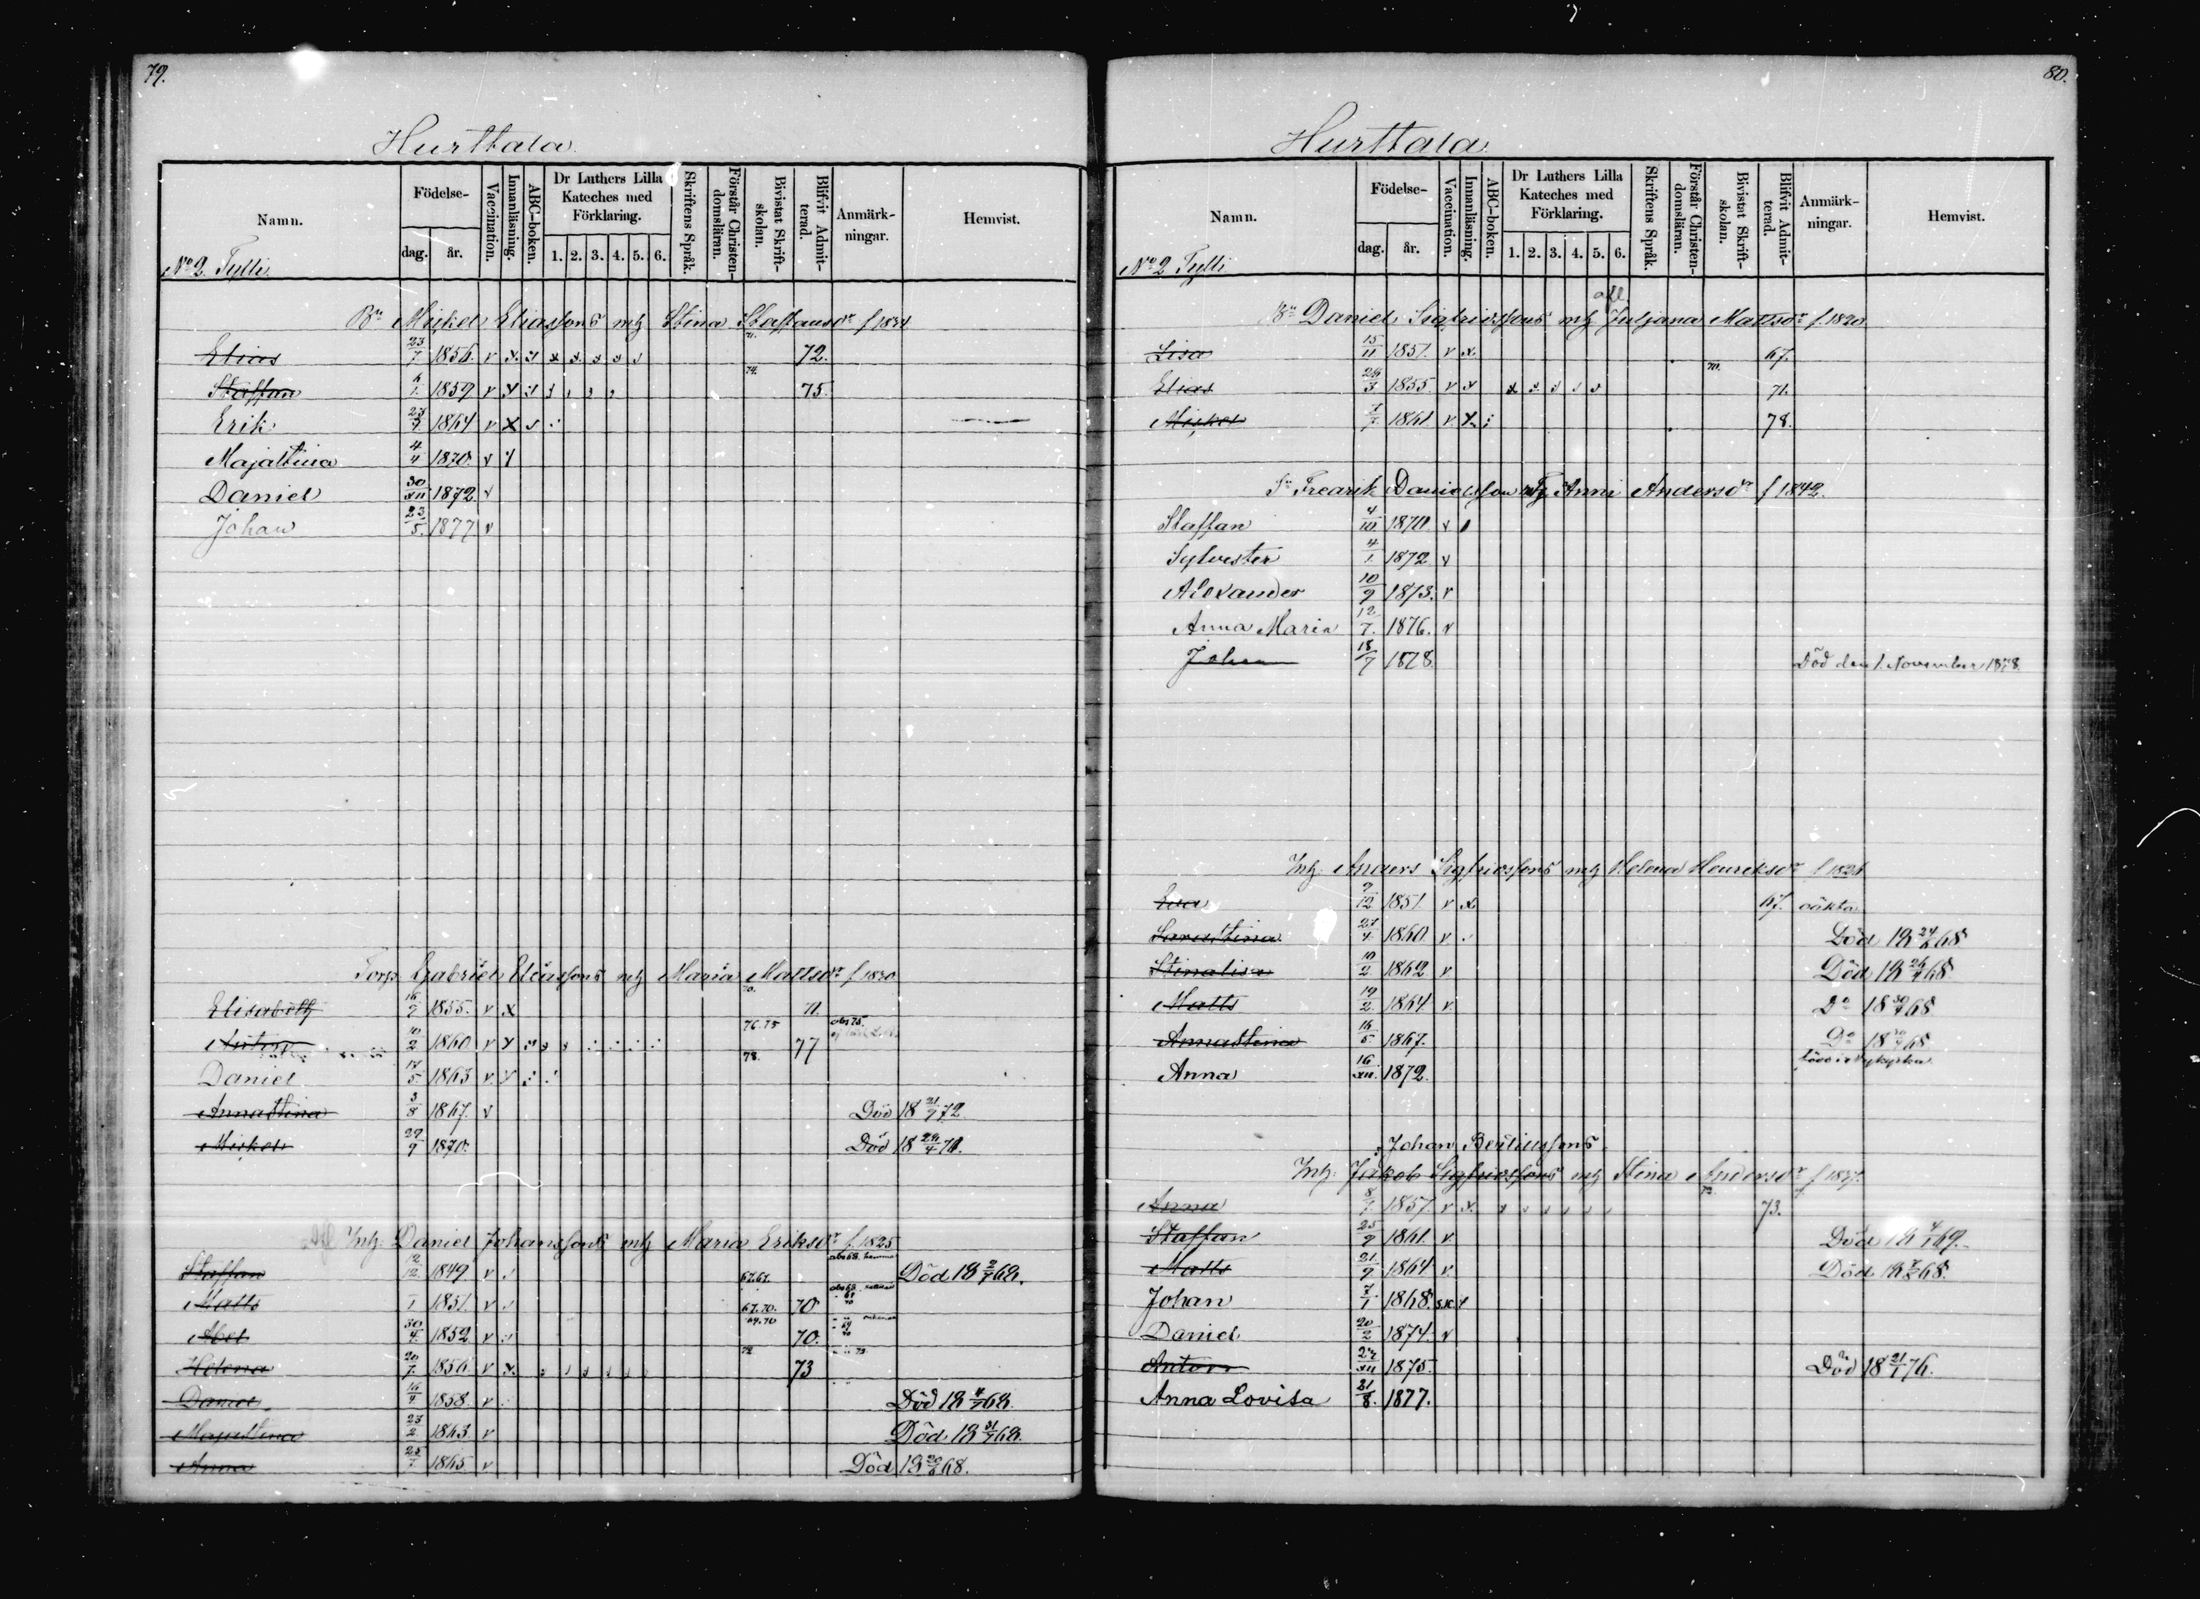 79.
Hurttala
Namn. Födelse- dag. år. Vaccination. Innanläsning. ABC-boken. Dr Luthers Lilla Kateches med Förklaring. 1. 2. 3. 4. 5. 6. Skriftens Språk. Förstår Christendomsläran. Bivistat Skriftskolan. Blifvit Admitterad. Anmärkningar. Hemvist.
No 2 Tylli
Bn Mickel Eliassons mhg Stina Staffansdr f 1834
Elias 23/7 1856. v x 72.
Staffan 6/1 1859 v x 74. 75.
Erik 1864 v x
Majastina 4/4 1870. v
Daniel 30/XII 1872 v
Johan 23/5. 1877 v
Torp. Gabriel Eliassons mhg Maria Mattsdr f 1830
Elisabeth 16/9 1855. v x 71.
10/2 1860 v x 76.75 77 abs 75.
Daniel 17/5 1863 v 78.
Annastina 3/8 1867. v Död 18 21/7 72
Mickel 29/9 1870. Död 18 24/4 71.
Inh: Daniel Johanssons mhg Maria Eriksdr f. 1825
Staffan 12/12. 1849 v 67.67. abs 68. Död 18 2/7 68.
Matts 1851. v 67.70. 70
Abel 30/4. 1852 v 69.70 70.
Helena 20/7. 1856 v x. 72 73
Daniel 16/4 1858. v Död 18 4/7 68.
Majastina 23/2 1863. v Död 18 31/7 68.
Anna 25/7 1865 v Död 18 20/6 68.
80.
Hurttala.
Namn. Födelse- dag. år. Vaccination. Innanläsning. ABC-boken. Dr Luthers Lilla Kateches med Förklaring. 1. 2. 3. 4. 5. 6. Skriftens Språk. Förstår Christendomsläran. Bivistat Skriftskolan. Blifvit Admitterad. Anmärkningar. Hemvist.
No 2 Tylli
afl.
Bn Daniel Sigfridssons mhg Juljana Mattsdr f. 1820
Lisa 15/11 1851. v x. 67.
Elias 24/3 1855 v x 70. 71.
Mickel 7/7 1861 v x 78.
Sn Fredrik Danielsson mhg Anni Andersdr f 1842.
Staffan 4/10 1870. v
Sylvester 4/1 1872 v
Alexander 10/9 1873. v
Anna Maria 12/7. 1876. v
Johan 18/7 1878. Död den 1. November 1878.
Inh: Anders Sigfridssons mhg Helena Henriksdr f 1826
Eva 9/12 1851 v x 67. oäkta
Sarastina 27/4 1860. v Död 18 24/6 68
Stinalisa 10/2 1862 v Död 18 26/4 68.
Matts 19/2 1864. v Do 18 30/4 68
Annastina 16/5 1867. Do 18 68
Anna 16/XII. 1872.
Johan Bertilssons
Inh: Jakob Sigfridssons mhg Stina Andersdr f 1837.
Anna 8/7 1857. v x. 72. 73.
Staffan 25/9 1861. v Död 18 4/1 69.
Matts 21/9 1864 v Död 18 68.
Johan 7/1 1868.
Daniel 20/2 1874. v
Anton 27/XII 1875. Död 18 21/1 76.
Anna Lovisa 31/8. 1877.